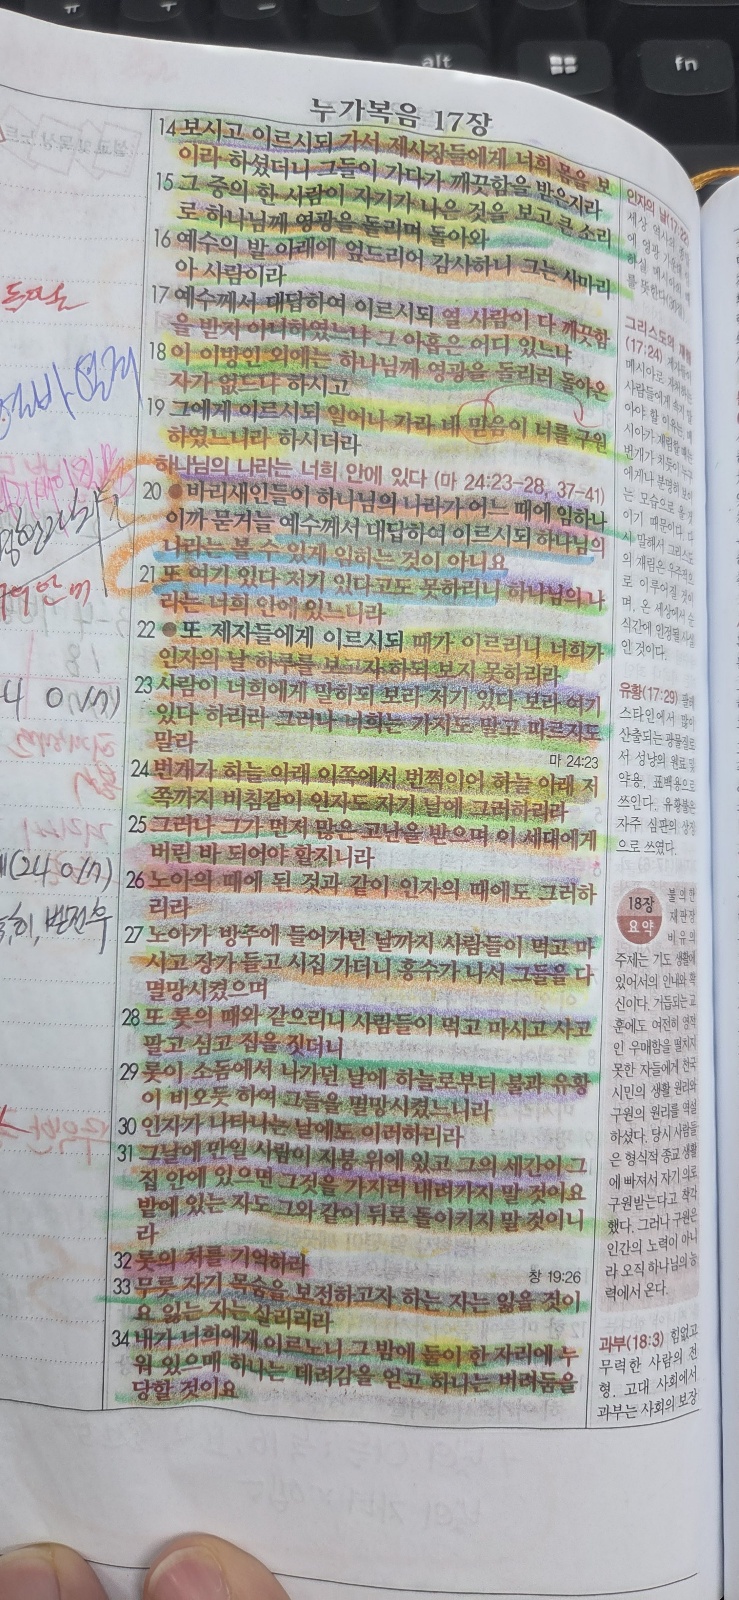 alt
fn
누가복음 17장
14 보시고 이르시되 가서 제사장들에게 너희 몸을 보
이라 하셨더니 그들이 가다가 깨끗함을 받은지라
15 그 중의 한 사람이 자기가 나은 것을 보고 큰 소리
로 하나님께 영광을 돌리며 돌아와
16 예수의 발 아래에 엎드리어 감사하니 그는 사마리
아 사람이라
17 예수께서 대답하여 이르시되 열 사람이 다 깨끗함
을 받지 아니하였느냐 그 아홉은 어디 있느냐
18 이 이방인 외에는 하나님께 영광을 돌리러 돌아온
자가 없느냐 하시고
19 그에게 이르시되 일어나 가라 네 믿음이 너를 구원
하였느니라 하시더라
하나님의 나라는 너희 안에 있다 (마 24:23-28, 37-41)
20 ●바리새인들이 하나님의 나라가 어느 때에 임하나
이까 묻거늘 예수께서 대답하여 이르시되 하나님의
나라는 볼 수 있게 임하는 것이 아니요
21 또 여기 있다 저기 있다고도 못하리니 하나님의 나
라는 너희 안에 있느니라
22 ●또 제자들에게 이르시되 때가 이르리니 너희가
인자의 날 하루를 보고자 하되 보지 못하리라
23 사람이 너희에게 말하되 보라 저기 있다 보라 여기
있다 하리라 그러나 너희는 가지도 말고 따르지도
말라
마 24:23
24 번개가 하늘 아래 이쪽에서 번쩍이어 하늘 아래 저
쪽까지 비침같이 인자도 자기 날에 그러하리라
25 그러나 그가 먼저 많은 고난을 받으며 이 세대에게
버린 바 되어야 할지니라
26 노아의 때에 된 것과 같이 인자의 때에도 그러하
리라
27 노아가 방주에 들어가던 날까지 사람들이 먹고 마
시고 장가 들고 시집 가더니 홍수가 나서 그들을 다
멸망시켰으며
28 또 롯의 때와 같으리니 사람들이 먹고 마시고 사고
팔고 심고 집을 짓더니
29 롯이 소돔에서 나가던 날에 하늘로부터 불과 유황
이 비오듯 하여 그들을 멸망시켰느니라
30 인자가 나타나는 날에도 이러하리라
31 그날에 만일 사람이 지붕 위에 있고 그의 세간이 그
집 안에 있으면 그것을 가지러 내려가지 말 것이요
밭에 있는 자도 그와 같이 뒤로 돌이키지 말 것이니
라
32 롯의 처를 기억하라
창 19:26
33 무릇 자기 목숨을 보전하고자 하는 자는 잃을 것이
요 잃는 자는 살리리라
34 내가 너희에게 이르노니 그 밤에 둘이 한 자리에 누
워 있으매 하나는 데려감을 얻고 하나는 버려둠을
당할 것이요
인자의 날(17:22)
그리스도의 재림
(17:24)
유황(17:29) 팔레
스타인에서 많이
산출되는 광물질로
서 성냥의 원료 및
약용, 표백용으로
쓰인다. 유황불은
자주 심판의 상징
으로 쓰였다.
18장
요약
불의한
재판장
비유의
주제는 기도 생활에
있어서의 인내와 확
신이다. 거듭되는 교
훈에도 여전히 영적
인 우매함을 떨치지
못한 자들에게 천국
시민의 생활 원리와
구원의 원리를 역설
하셨다. 당시 사람들
은 형식적 종교 생활
에 빠져서 자기 의로
구원받는다고 착각
했다. 그러나 구원은
인간의 노력이 아니
라 오직 하나님의 능
력에서 온다.
과부(18:3) 힘없고
무력한 사람의 전
형. 고대 사회에서
과부는 사회의 보장